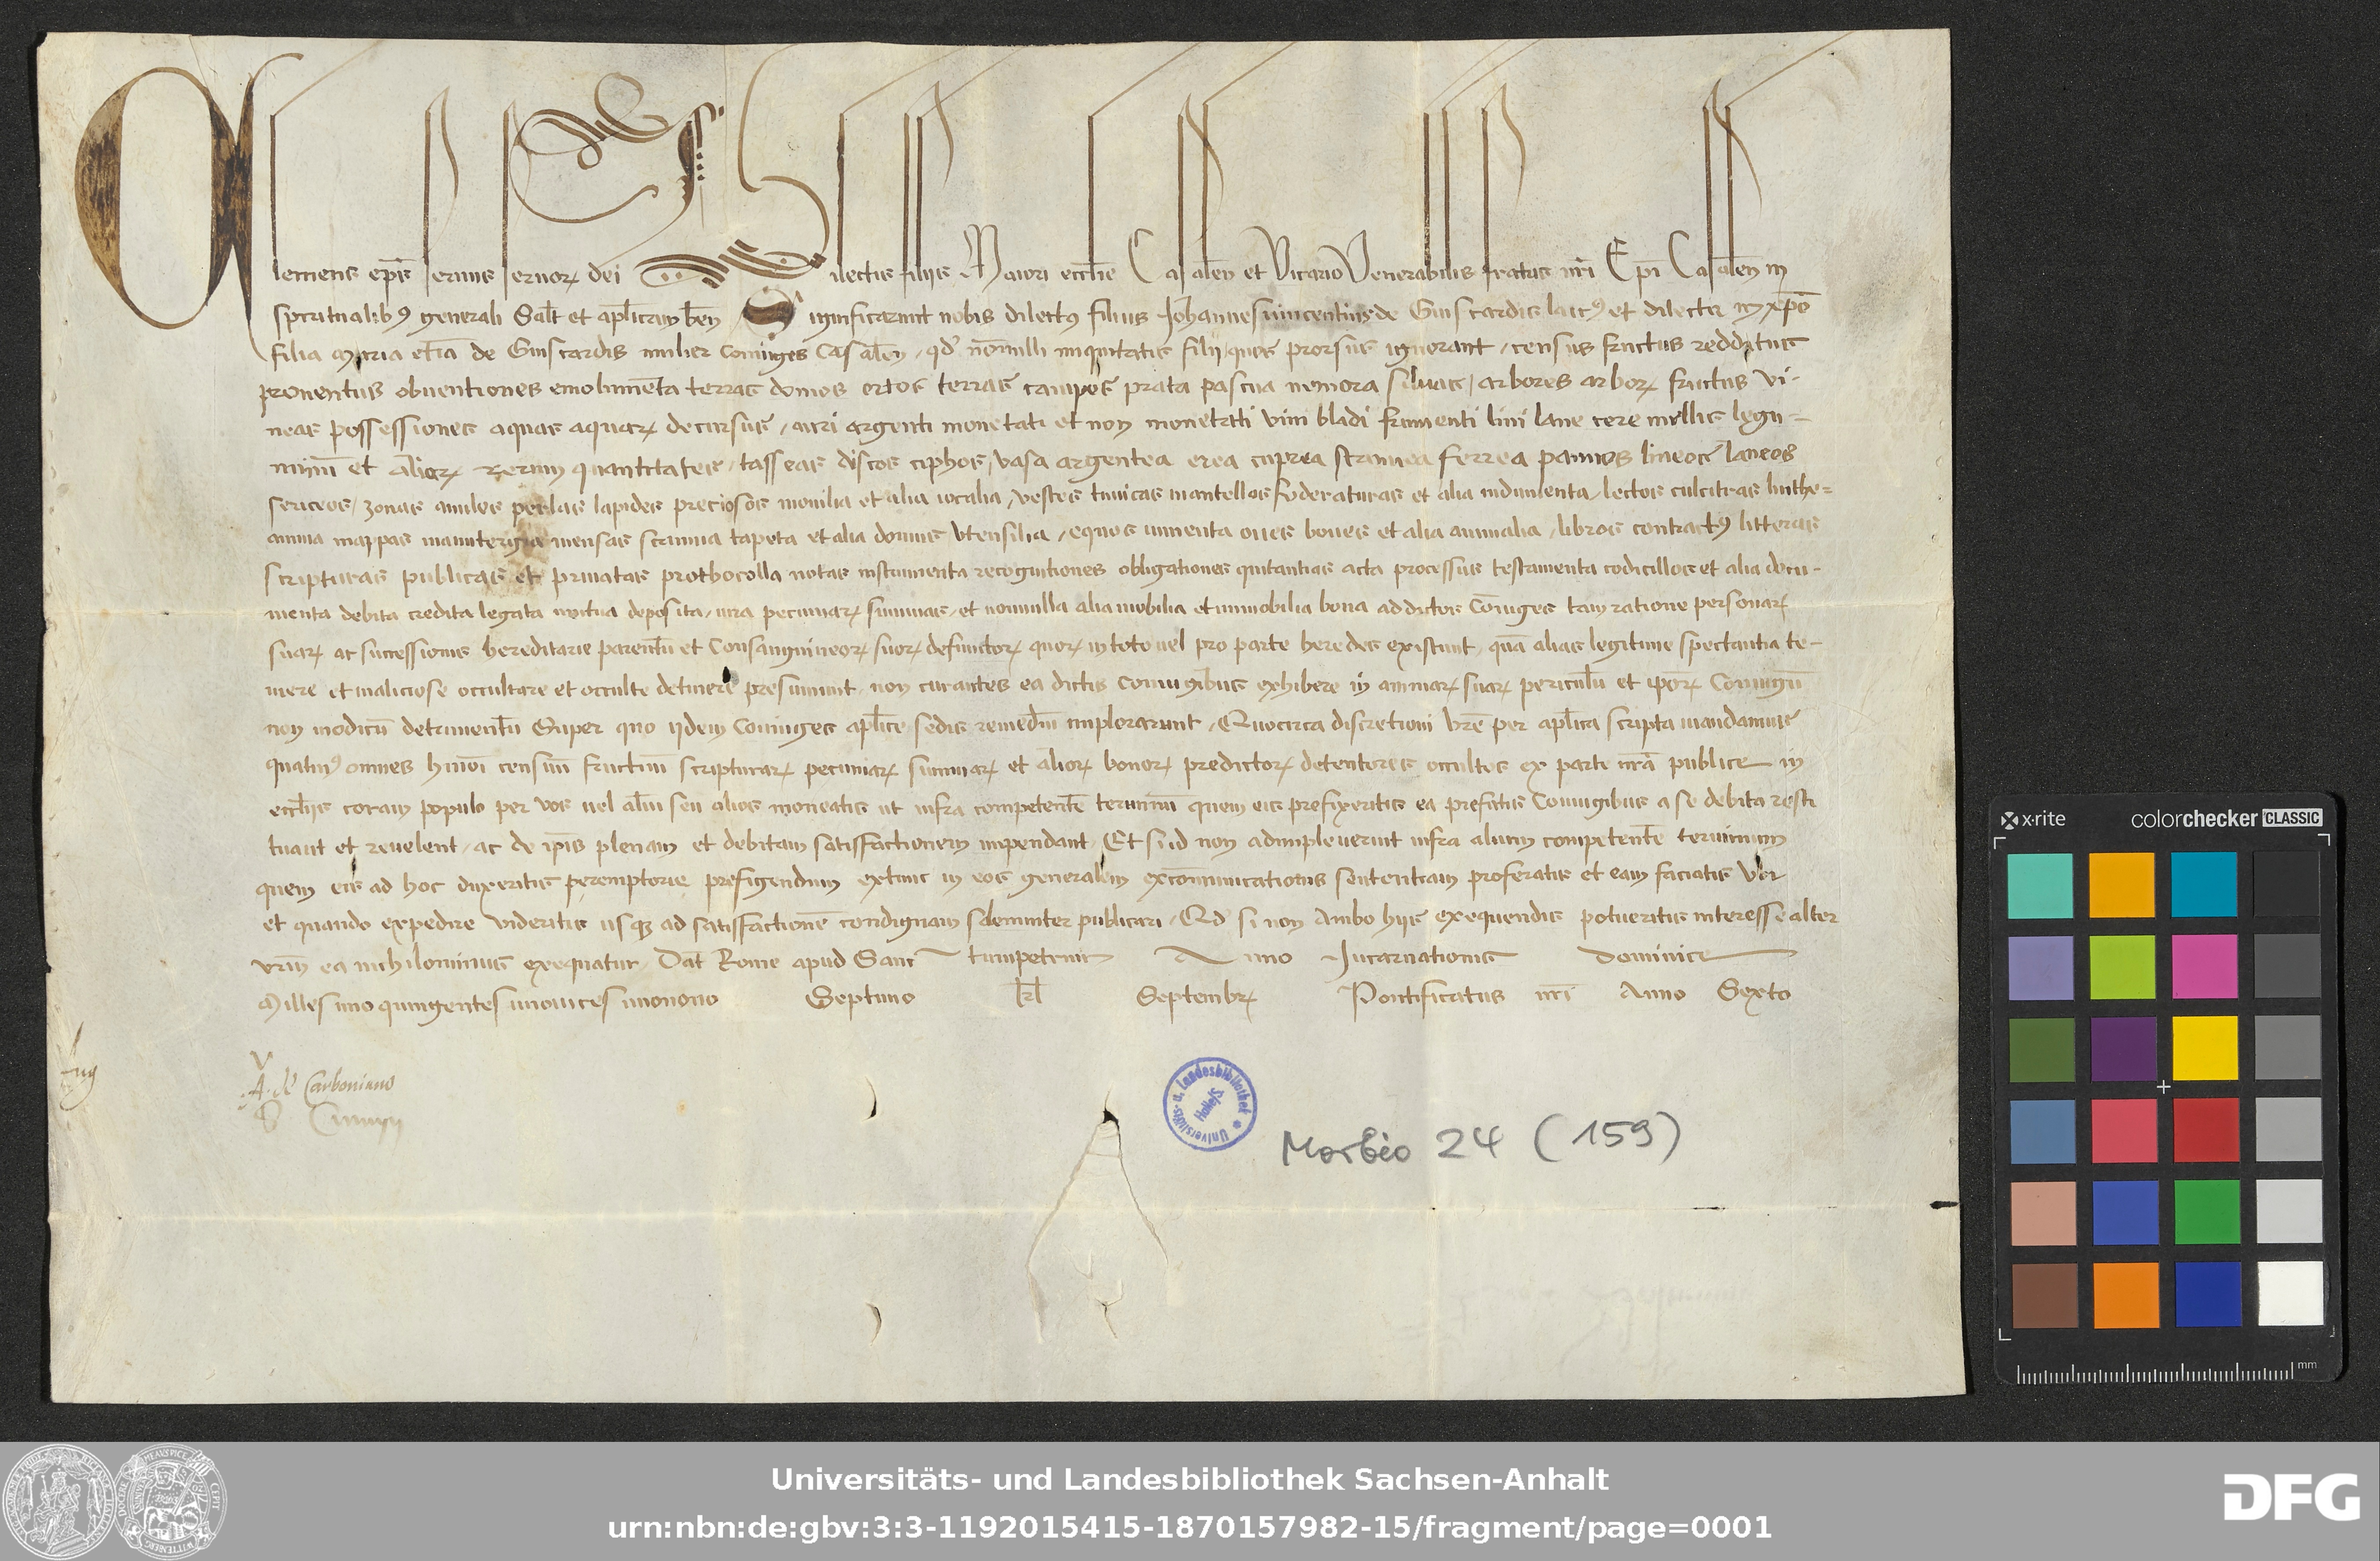 Clemens ep̄s seruus seruorꝝ dei Dilectis filijs Maiori eccl̄ie Casalen̄ et Vicario Venerabilis fratris nr̄i Ep̄i Casalen̄ in
sp̄iritualibꝰ generali Salt̄ et apl̄icam ben̄ Significarunt nobis dilectꝰ filius Johannesuincentius de Guiscardis laicꝰ et dilecta in xp̄o
filia Maria etiā de Guiscardis mulier coniuges Casalen̄, qd̄ nōnulli iniquitatis filij quos prorsus ignorant, census fructus redditus
prouentus obuentiones emolumēta terras domos ortos terras campos prata pascua nemora siluas, arbores arborꝝ fructus vi-
neas possessiones aquas aquarꝝ decursus, auri argenti monetati et non monetati vini bladi frumenti lini lane cere mellis legu-
minū et aliarꝝ rerum quantitates, tasseas discos ciphos, vasa argentea erea cuprea stannea ferrea pannos lineos laneos
sericeos, zonas anulos perlas lapides preciosos monilia et alia iocalia, vestes tunicas mantellos foderaturas et alia indumenta, lectos culcitras linthe=
amina mappas manutergia mensas scamna tapeta et alia domus vtensilia, equos iumenta oues boues et alia animalia, libros contractꝰ litteras
scripturas publicas et priuatas prothocolla notas instrumenta recognitiones obligationes quitantias acta processus testamenta codicillos et alia docu-
menta debita credita legata mutua deposita, iura pecuniarꝝ summas, et nonnulla alia mobilia et immobilia bona ad dictos cōiuges tam ratione personarꝝ
suarꝝ ac successionis hereditarie parentū et consanguineorꝝ suorꝝ defunctorꝝ quorꝝ in toto uel pro parte heredes existunt, quā alias legitime spectantia te-
mere et maliciose occultare et occulte detinere presumunt, non curantes ea dictis coniugibus exhibere in animarꝝ suarꝝ periculū et ip̄orꝝ Coniugū
non modicū detrimentū Super quo ijdem Coniuges apl̄ice sedis remediū implorarunt, Quocirca discretioni vr̄e per apl̄ica scripta mandamus
quatinꝰ omnes hm̄oi censuū fructuū scripturarꝝ pecuniarꝝ summarꝝ et aliorꝝ bonorꝝ predictorꝝ detentores occultos ex parte nr̄a publice in
eccl̄ijs coram populo per vos uel aliū seu alios moneatis ut infra competentē terminū quem eis prefixeritis ea prefatis Coniugibus a se debita resti
tuant et reuelent, ac de ip̄is plenam et debitam satisfactionem impendant, Et si id non adimpleuerint infra alium competentē terminum
quem eis ad hoc duxeritis peremptorie prefigendum extunc in eos generalem excōmunicationis sententiam proferatis et eam faciatis vbi
et quando expedire videritis usqꝫ ad satisfactionē condignam solemniter publicari, Qd̄ si non ambo hijs exequendis potueritis interesse alter
vrm̄ ea nichilominus exequatur, Dat̄ Rome apud Sanctumpetrum Anno Incarnationis dominice
Millesimoquingentesimouicesimonono Septimo kl̄ Septembrꝭ Pontificatus nr̄i Anno Sexto
V
A. de Carboniano
Universitäts- u. Landesbibliothek
Halle/S.
Morbio 24 (159)
x·rite colorchecker CLASSIC
mm
Universitäts- und Landesbibliothek Sachsen-Anhalt
urn:nbn:de:gbv:3:3-1192015415-1870157982-15/fragment/page=0001
DFG